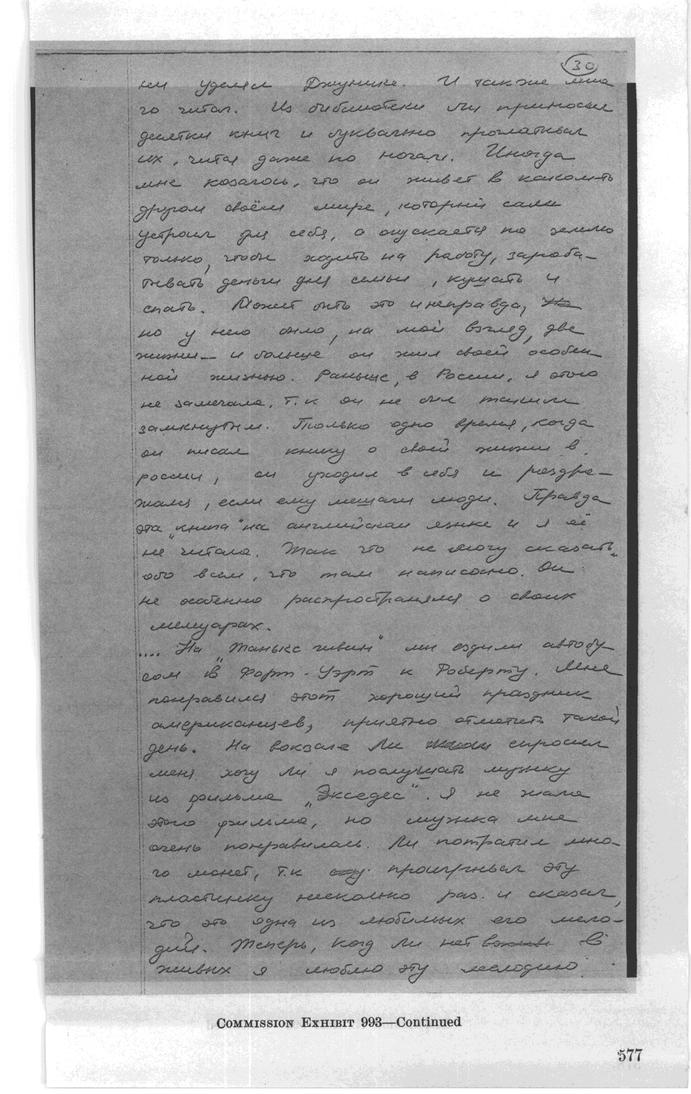 30
ни уделял Джунике. И также мно
го читал. Из библиотеки Ли приносил
десятки книг и буквально проглатывал
их, читая даже по ночам. Иногда
мне казалось, что он живет в каком-то
другом своём мире, который сам
устроил для себя, а опускается на землю
только, чтобы ходить на работу, зараба-
тывать деньги для семьи, кушать и
спать. Может быть это и неправда,
но у него было, на мой взгляд, две
жизни – и больше он жил своей особен
ной жизнью. Раньше, в России, я этого
не замечала, т.к он не был таким
замкнутым. Только одно время, когда
он писал книгу о своей жизни в
россии, он уходил в себя и раздра-
жался, если ему мешали люди. Правда
эта "книга" на английском языке и я её
не читала. Так что не могу сказать
обо всем, что там написано. Он
не особенно распространялся о своих
мемуарах.
.... На "Танькс гивин" мы ездили автобу
сом в Форт-Уэрт к Роберту. Мне
понравился этот хороший праздник
американцев, приятно отметить такой
день. На вокзале Ли спросил
меня хочу ли я послушать музыку
из фильма "Экседес". Я не знала
этого фильма, но музыка мне
очень понравилась. Ли потратил мно-
го монет, т.к проигрывал эту
пластинку несколько раз и сказал,
что это одна из любимых его мело-
дий. Теперь, когд Ли нет в
живых я люблю эту мелодию
COMMISSION EXHIBIT 993—Continued
577